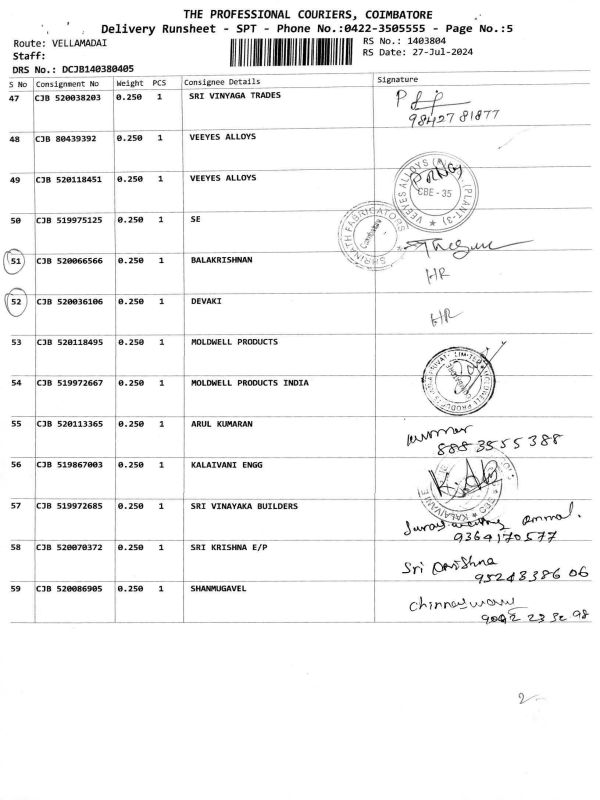 THE PROFESSIONAL COURIERS, COIMBATORE
Delivery Runsheet - SPT - Phone No.:0422-3505555 - Page No.:5
Route: VELLAMADAI
RS No.: 1403804
Staff:
RS Date: 27-Jul-2024
DRS No.: DCJB140380405
S No Consignment No Weight PCS Consignee Details Signature
47 CJB 520038203 0.250 1 SRI VINYAGA TRADES
98427 81877
48 CJB 80439392 0.250 1 VEEYES ALLOYS
49 CJB 520118451 0.250 1 VEEYES ALLOYS
VEEYES ALLOYS
CBE - 35
(PLANT-3)
50 CJB 519975125 0.250 1 SE
SRINATH FABRICATORS
Coimbatore
51 CJB 520066566 0.250 1 BALAKRISHNAN
HR
52 CJB 520036106 0.250 1 DEVAKI
HR
53 CJB 520118495 0.250 1 MOLDWELL PRODUCTS
54 CJB 519972667 0.250 1 MOLDWELL PRODUCTS INDIA
MOLDWELL PRODUCTS INDIA PRIVATE LIMITED
55 CJB 520113365 0.250 1 ARUL KUMARAN
kumar
888 3555388
56 CJB 519867003 0.250 1 KALAIVANI ENGG
KALAIVANI
57 CJB 519972685 0.250 1 SRI VINAYAKA BUILDERS
ammal.
9364170577
58 CJB 520070372 0.250 1 SRI KRISHNA E/P
Sri Krishna
95248386 06
59 CJB 520086905 0.250 1 SHANMUGAVEL
chinnaswamy